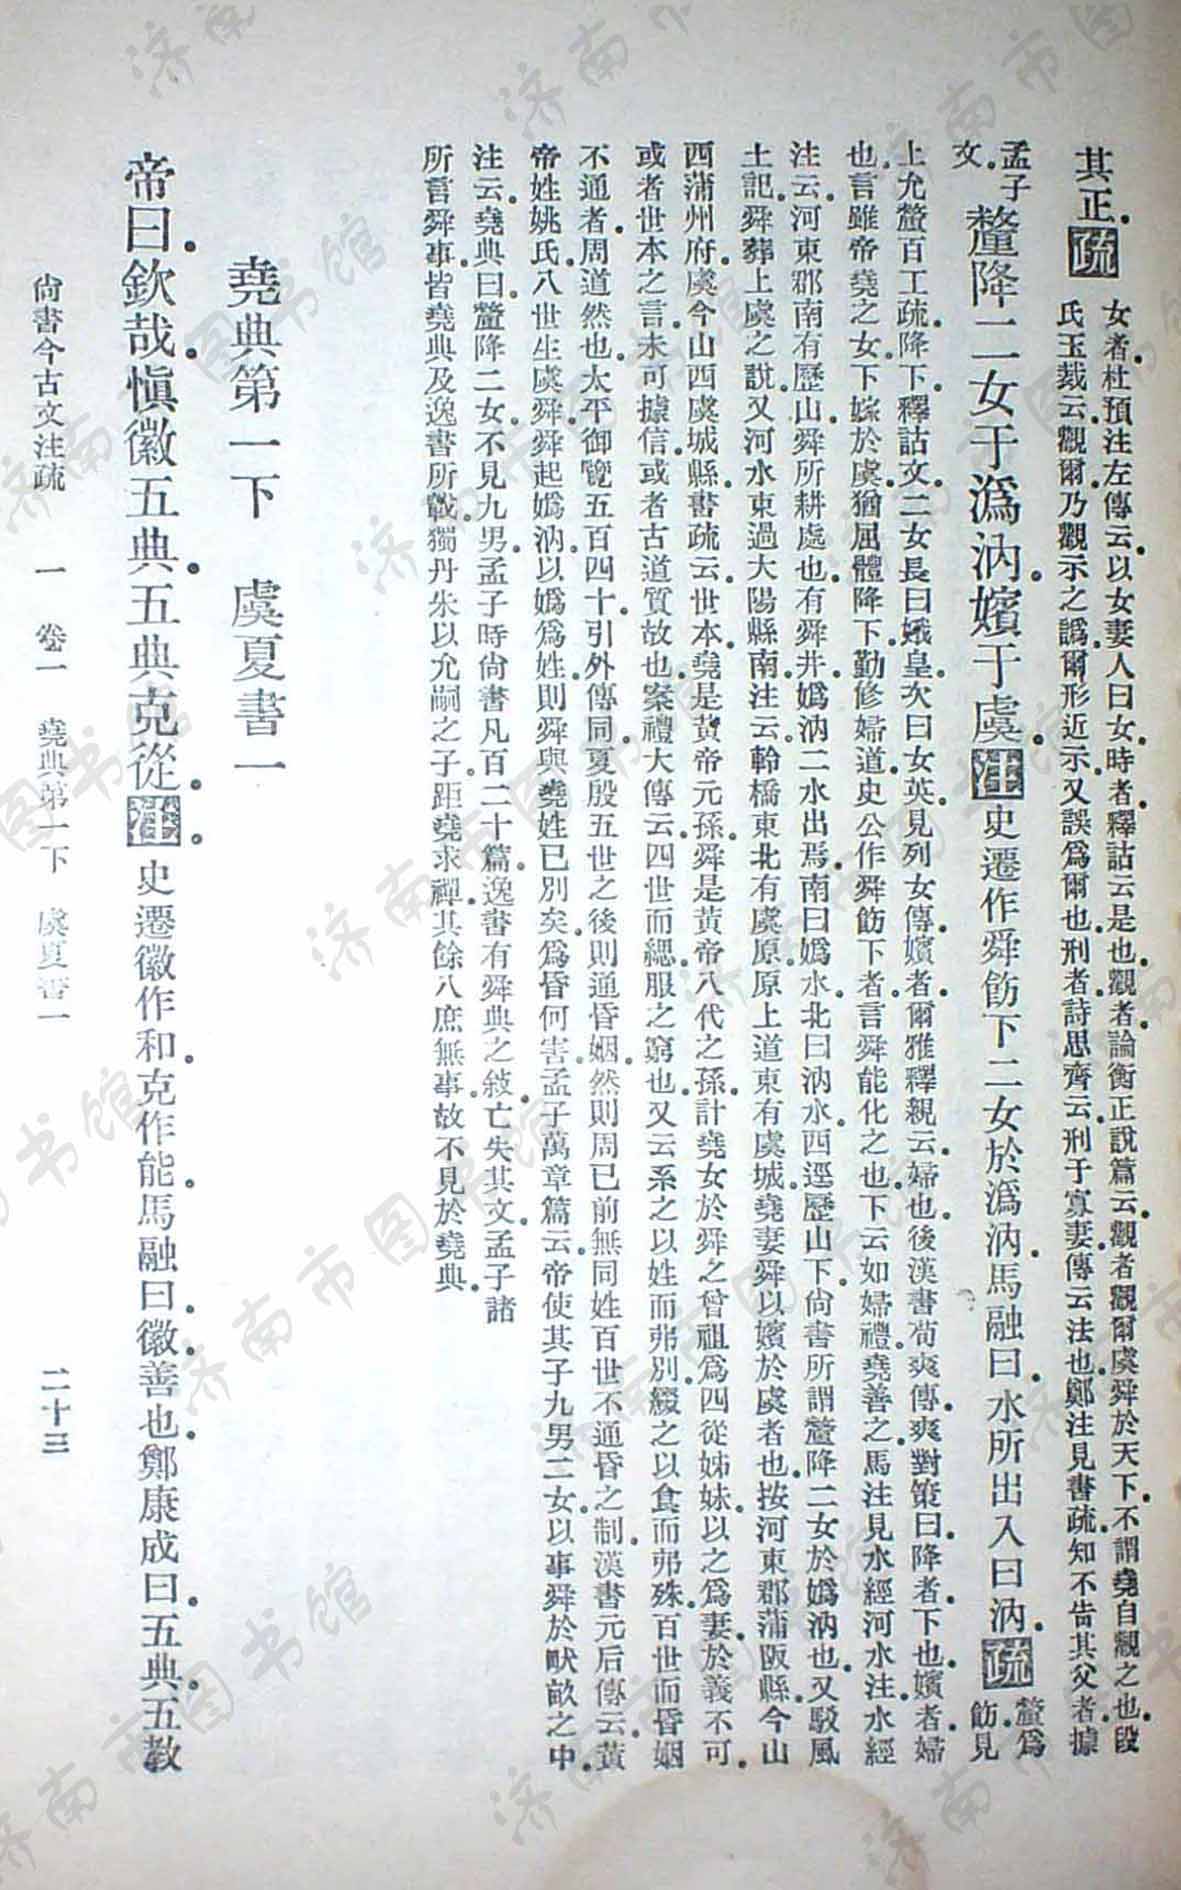 其正。疏
女者。杜預注左傳云。以女妻人曰女。時者。釋詁云。是也。觀者。論衡正說篇云。觀者觀爾虞舜於天下。不謂堯自觀之也。段
氏玉裁云。觀爾。乃觀示之譌。爾形近示。又誤爲爾也。刑者。詩思齊云。刑于寡妻。傳云。法也。鄭注見書疏。知不告其父者。據
孟子
文。
釐降二女于潙汭。嬪于虞。注史遷作舜飭下二女於潙汭。馬融曰。水所出入曰汭。疏
釐爲
飭。見
上允釐百工疏。降。下。釋詁文。二女。長曰娥皇。次曰女英。見列女傳。嬪者。爾雅釋親云。婦也。後漢書荀爽傳。爽對策曰。降者。下也。嬪者。婦
也。言雖帝堯之女。下嫁於虞。猶屈體降下。勤修婦道。史公作舜飭下者。言舜能化之也。下云如婦禮。堯善之。馬注見水經河水注。水經
注云。河東郡南有歷山。舜所耕處也。有舜井。嬀汭二水出焉。南曰嬀水。北曰汭水。西逕歷山下。尙書所謂釐降二女於嬀汭也。又駁風
土記舜葬上虞之說。又河水東過大陽縣南。注云。軨橋東北有虞原。原上道東有虞城。堯妻舜以嬪於虞者也。按河東郡蒲阪縣。今山
西蒲州府。虞今山西虞城縣。書疏云。世本。堯是黃帝元孫。舜是黃帝八代之孫。計堯女於舜之曾祖爲四從姊妹。以之爲妻。於義不可。
或者世本之言。未可據信。或者古道質故也。案禮大傳云。四世而緦。服之窮也。又云。系之以姓而弗別。綴之以食而弗殊。百世而昏姻
不通者。周道然也。太平御覽五百四十。引外傳同。夏殷五世之後。則通昏姻。然則周已前無同姓百世不通昏之制。漢書元后傳云。黃
帝姓姚氏。八世生虞舜。舜起嬀汭。以嬀爲姓。則舜與堯姓已別矣。爲昏何害。孟子萬章篇云。帝使其子九男二女。以事舜於畎畝之中。
注云。堯典曰。釐降二女。不見九男。孟子時尙書凡百二十篇。逸書有舜典之敍。亡失其文。孟子諸
所言舜事。皆堯典及逸書所載。獨丹朱以允嗣之子。距堯求禪。其餘八庶無事。故不見於堯典。
堯典第一下　虞夏書一
帝曰。欽哉。愼徽五典。五典克從。注。史遷徽作和。克作能。馬融曰。徽。善也。鄭康成曰。五典。五教
尙書今古文注疏　一　卷一　堯典第一下　虞夏書一　二十三
济南市图书馆